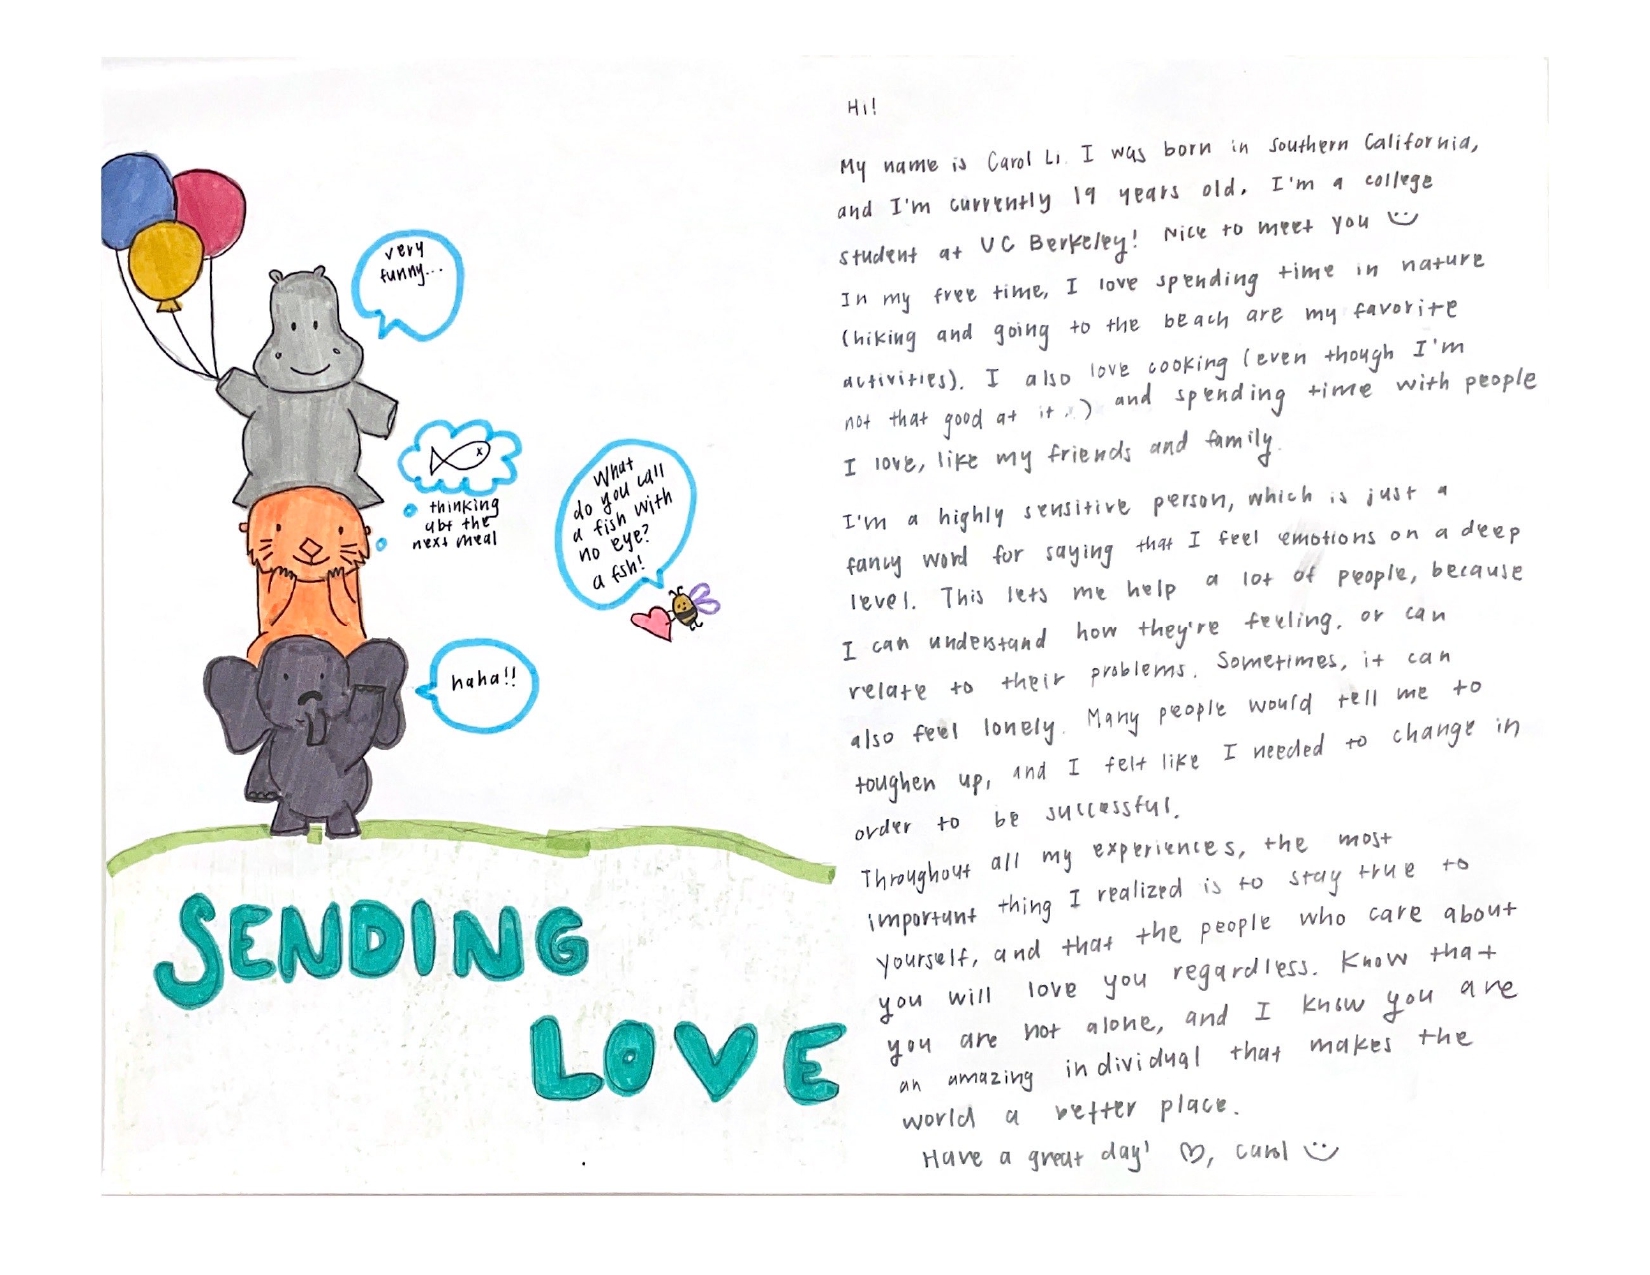 very
funny...
thinking
abt the
next meal
What
do you call
a fish with
no eye?
a fsh!
haha!!
SENDING
LOVE
Hi!
My name is Carol Li. I was born in Southern California,
and I'm currently 19 years old. I'm a college
student at UC Berkeley! Nice to meet you
In my free time, I love spending time in nature
(hiking and going to the beach are my favorite
activities). I also love cooking (even though I'm
not that good at it..) and spending time with people
I love, like my friends and family.
I'm a highly sensitive person, which is just a
fancy word for saying that I feel emotions on a deep
level. This lets me help a lot of people, because
I can understand how they're feeling, or can
relate to their problems. Sometimes, it can
also feel lonely. Many people would tell me to
toughen up, and I felt like I needed to change in
order to be successful.
Throughout all my experiences, the most
important thing I realized is to stay true to
yourself, and that the people who care about
you will love you regardless. Know that
you are not alone, and I know you are
an amazing individual that makes the
world a better place.
Have a great day! ♡, Carol